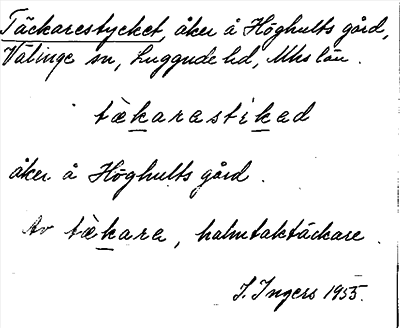 Täckarestycket, åker å Höghults gård,
Välinge sn, Luggude hd, Mhs län.
tækarastikad
åker å Höghults gård.
Av tækara, halmtaktäckare.
I. Ingers 1955.